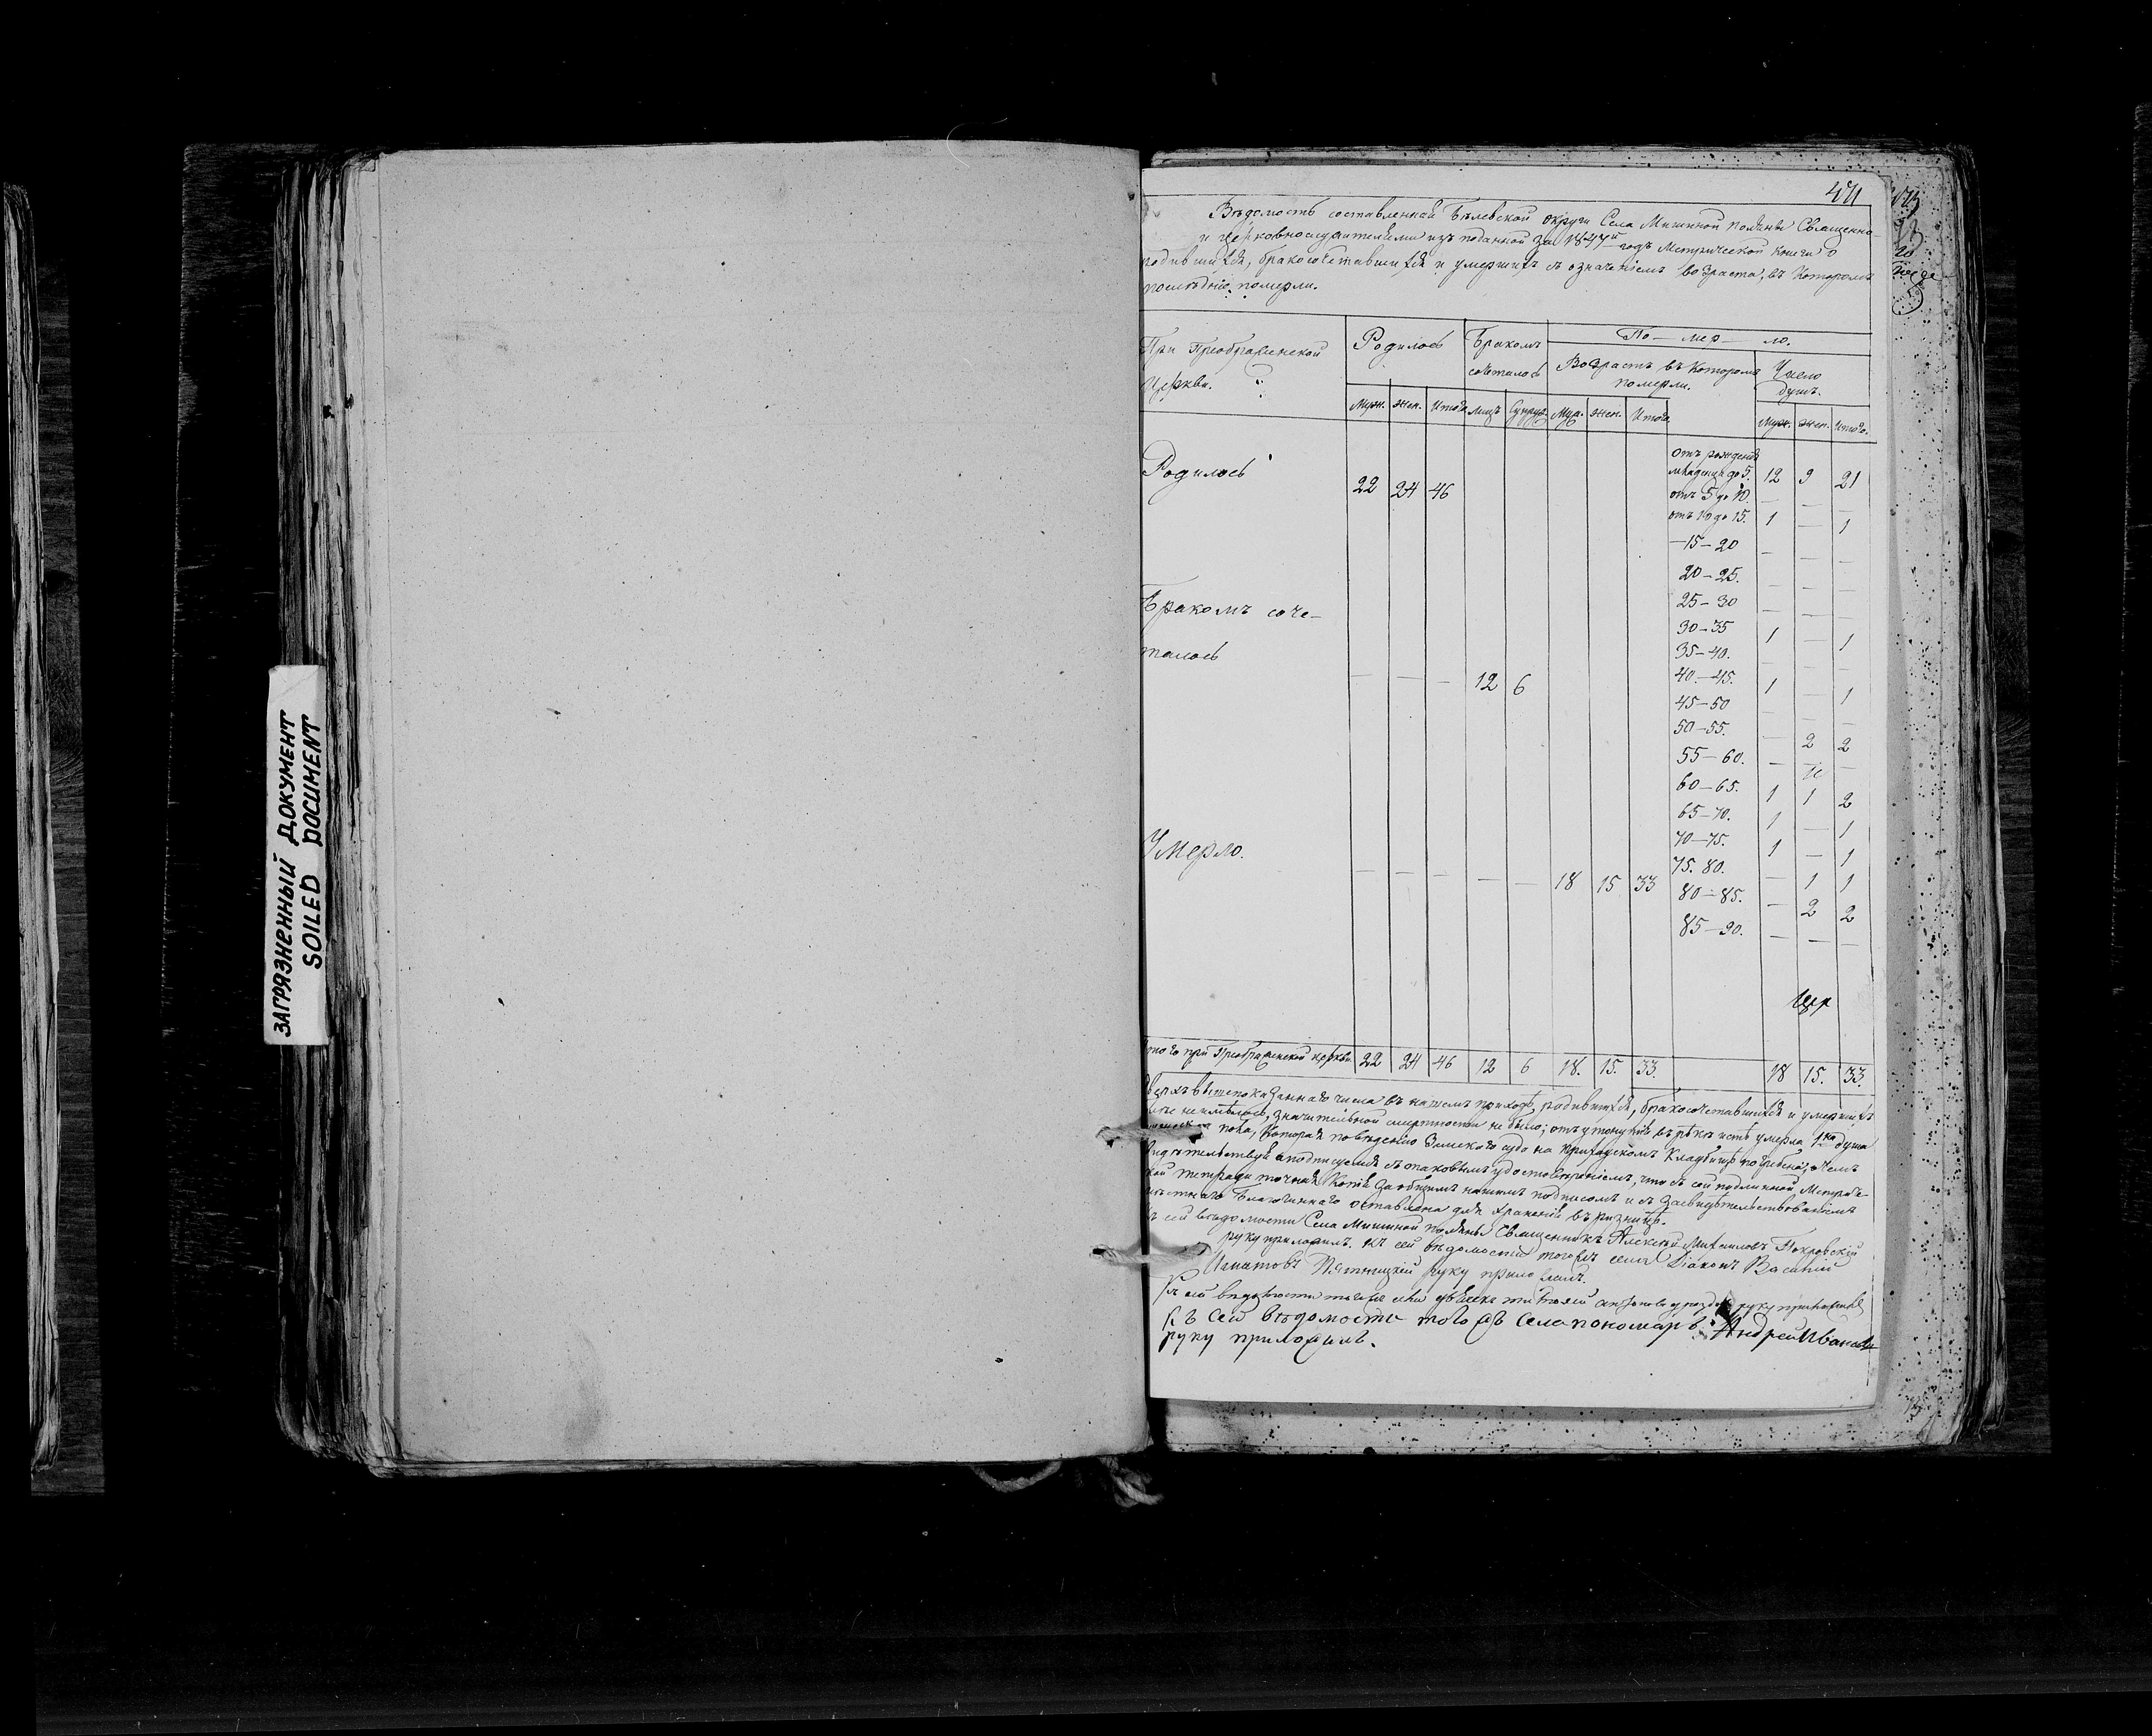 ЗАГРЯЗНЕННЫЙ ДОКУМЕНТ
SOILED DOCUMENT
471
Вѣдомость составленная Бѣлевской округи Села Мишиной поляны Священно-
и церковнослужителями изъ поданной за 1847й годъ Метрической книги о
родившихся, бракосочетавшихся и умершихъ съ означеніемъ возраста, въ которомъ
послѣдніе померли.
При Преображенской Церкви.
Родилось
Бракомъ сочеталось
По- мер- ло.
Возрастъ въ которомъ померли.
Число душъ.
Муж. Жен. Итого. лицъ Супруж. Муж. Жен. Итого. Муж. Жен. Итого.
Родилось 22 24 46
отъ рожденія
младенца до 5. 12 9 21
отъ 5 до 10. — — —
отъ 10 до 15. 1 — 1
—15—20 — — —
20—25. — — —
25—30 — — —
30—35 1 — 1
35—40. — — —
40.—45. 1 — 1
45—50 — — —
50—55. — 2 2
55—60. — — —
60—65. 1 1 2
65—70. 1 — 1
70—75. 1 — 1
75.80. — 1 1
80—85. — 2 2
85—90. — — —
Бракомъ соче-
талось — — — 12 6
Умерло. — — — — — 18 15 33
при Преображенской церкви. 22 24 46 12 6 18. 15. 33. 18 15. 33.
вышепоказаннаго числа въ нашемъ приходѣ родившихся, бракосочетавшихся и умершихъ
не имѣлось, значительной смертности не было; отъ въ рѣкѣ умерла 1на душа
пола, которая по Земскаго суда на приходскомъ кладбищѣ погребена; въ чемъ
подписуемся съ таковымъ удостовѣреніемъ, что съ сей подлинной Метриче-
тетради точная копія за общимъ нашимъ подписомъ и съ засвидѣтельствованіемъ
Благочиннаго оставлена для храненія въ ризницѣ.
сей вѣдомости Села Мишиной поляны Священникъ Алексѣй Михаиловъ Покровскій
руку приложилъ. Къ сей вѣдомости тогожъ села Діаконъ Василій
Игнатовъ Пятницкій руку приложилъ.
Къ сей вѣдомости тогожъ села руку приложилъ
Къ сей вѣдомости того жъ села пономарь Андрей Ивановъ
руку приложилъ.